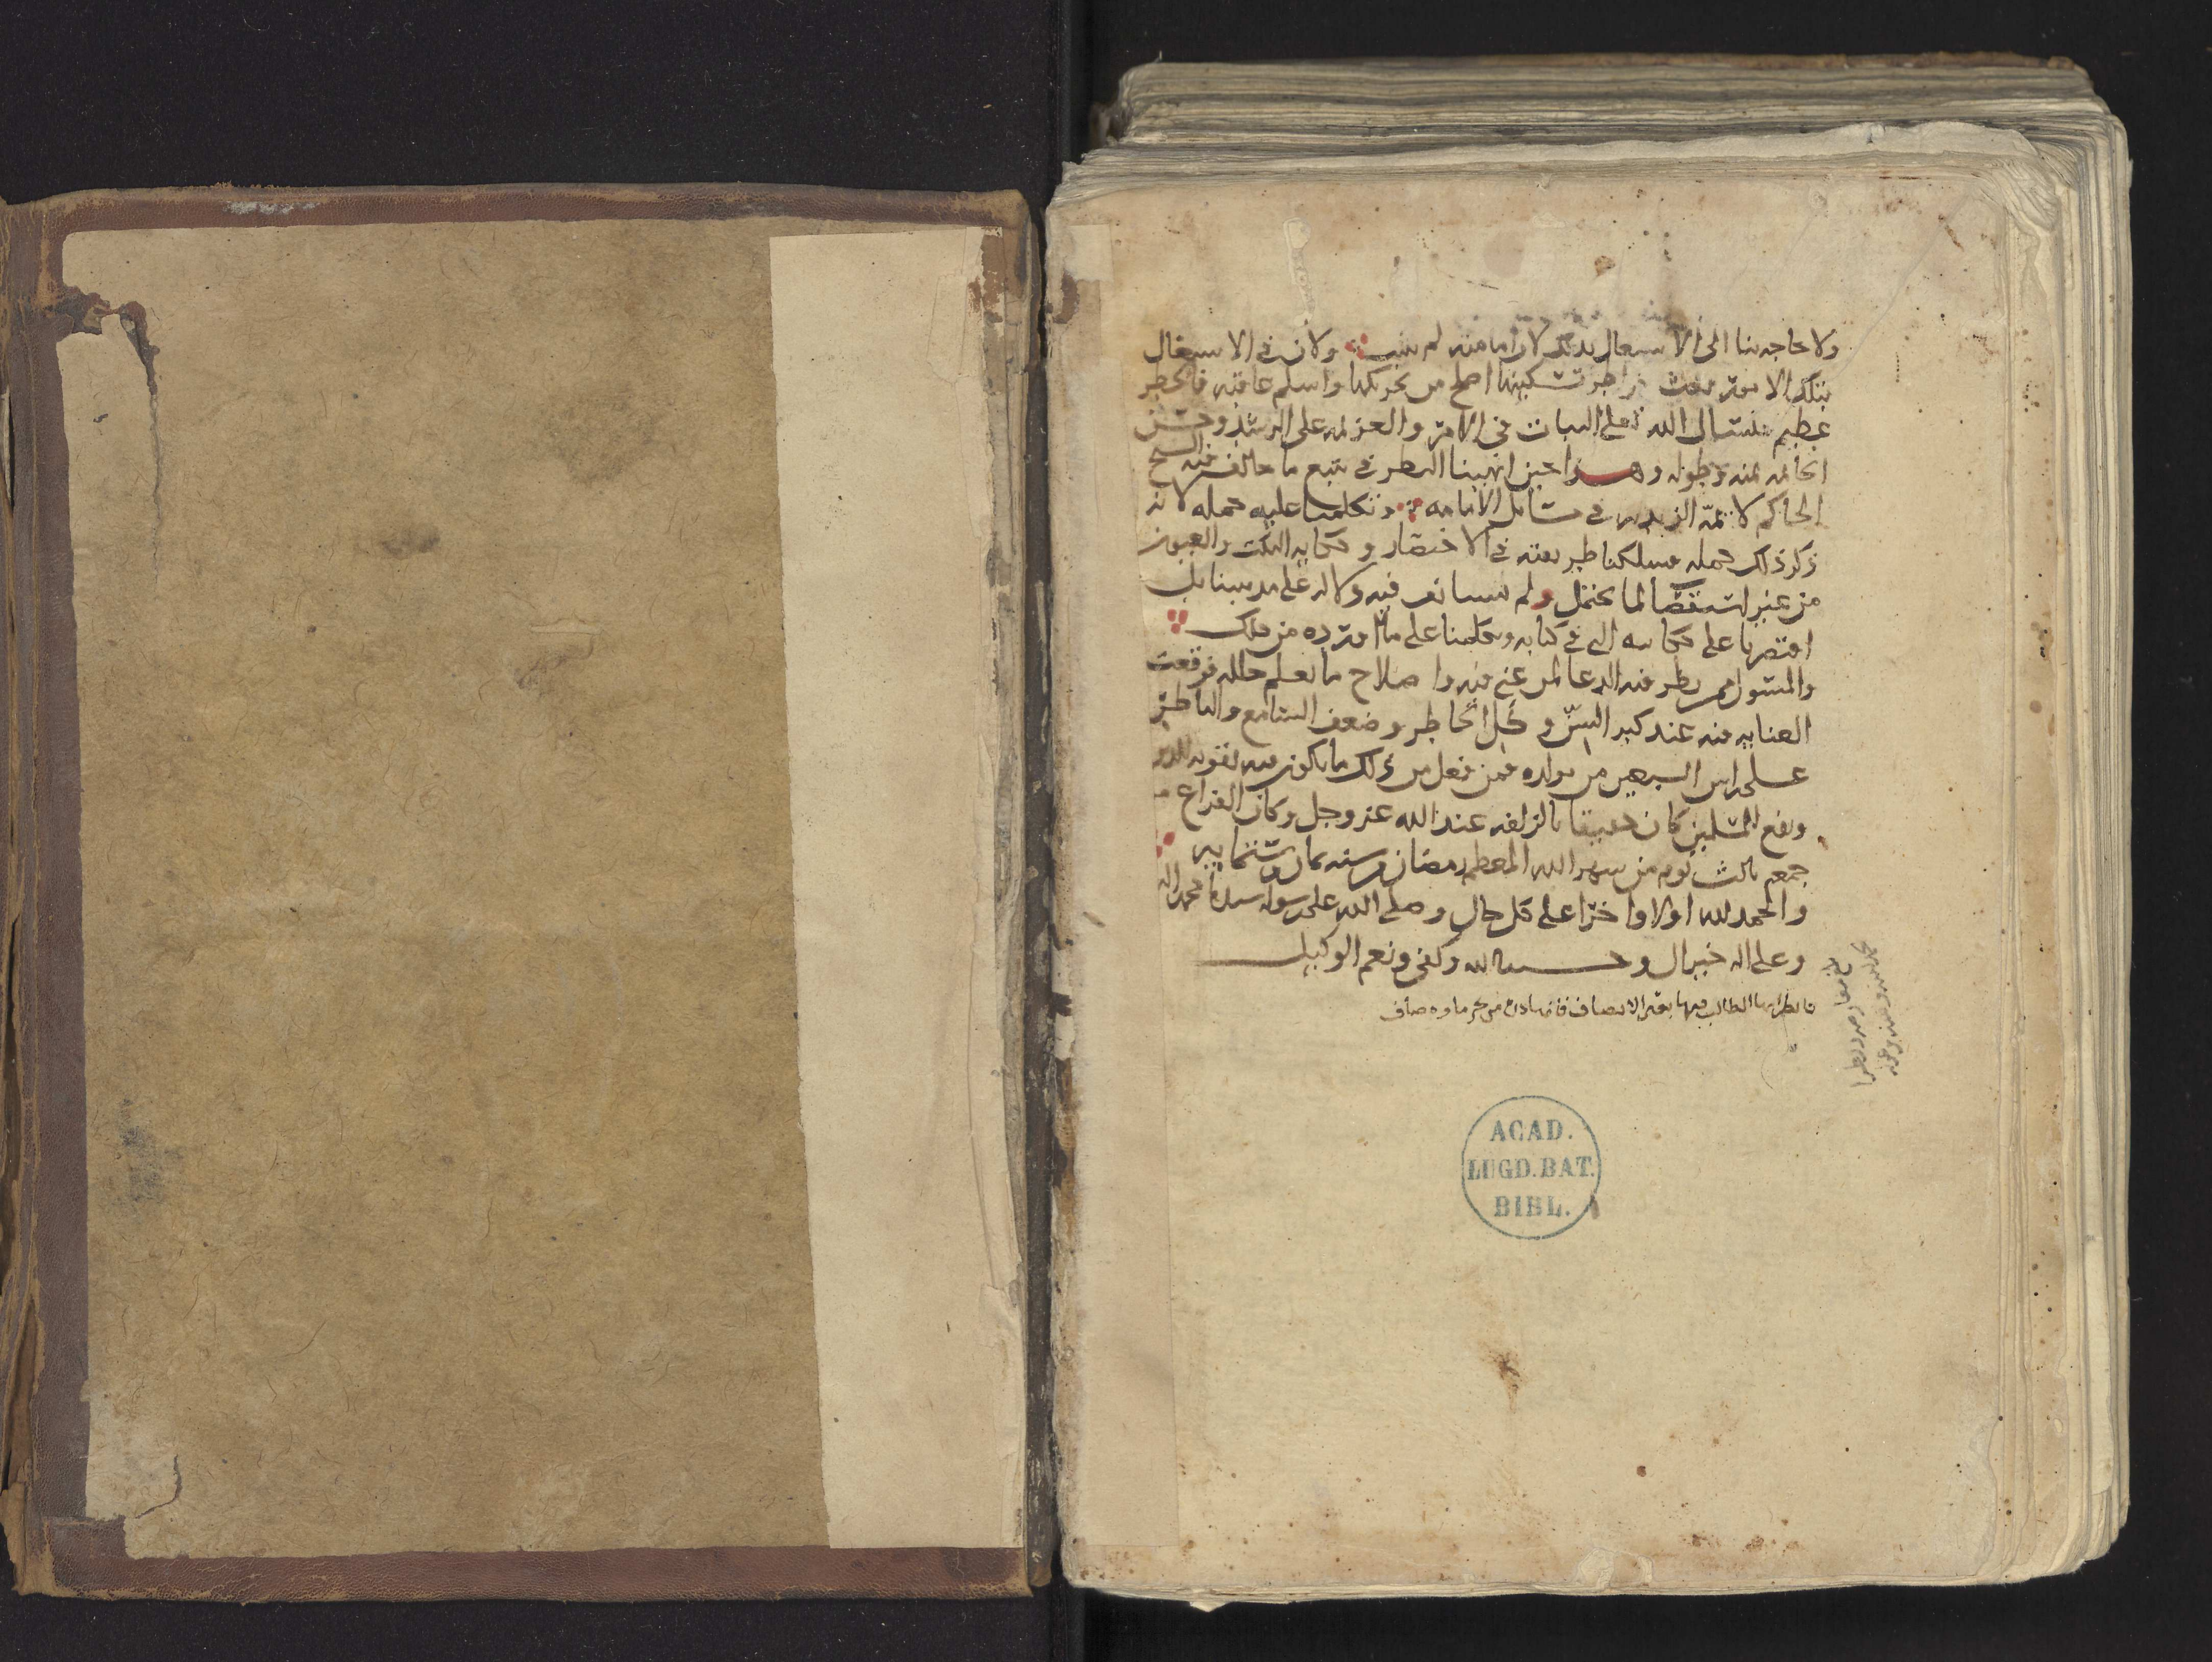 ولا حاجه بنا الى الاشتغال بذلك لان امامته لم تثبت ولان في الاشتغال
بتلك الامور تسكينها اصلح من تحريكها واسلم عاقبه فالخطر
عظيم فنسال الله تعلى الثبات في الامر والعزيمه على الرشد وحسن
الخاتمه بمنه وطوله وهذا حين انهينا النظر في تتبع ما خالف فيه الشيخ
الحاكم لائمة الزيديه في مسائل الامامه وتكلمنا عليه جمله لانه
ذكر ذلك جمله فسلكنا طريقته في الاختصار وحكايه النكت والعيون
من غير استقصا لما يحتمل ولم فيه دلاله على مذهبنا بل
اقتصرنا على حكايته التي في كتابه وتكلمنا على ما اورده من ذلك
والمسئول ممن نظر فيه الدعا لمن عني فيه واصلاح ما يعلم خلله فوقعت
العنايه منه عند كبر السن وكل الخاطر وضعف السامع والناظر
على راس السبعين من مولده فمن فعل من ذلك ما يكون فيه تقويه للدين
ونفع المسلمين كان حقيقا بالزلفه عند الله عز وجل وكان الفراغ من
جمعه ثالث يوم من شهر الله المعظم رمضان من سنه ثمان وستمايه
والحمد لله اولا واخرا على كل حال وصلى الله على رسوله سيدنا محمد واله
وعلى اله خير ال وحسبنا الله وكفى ونعم الوكيل
فانظر ايها الطالب فيها بعين الانصاف من بحر ماوه صاف
ACAD.
LUGD.BAT.
BIBL.